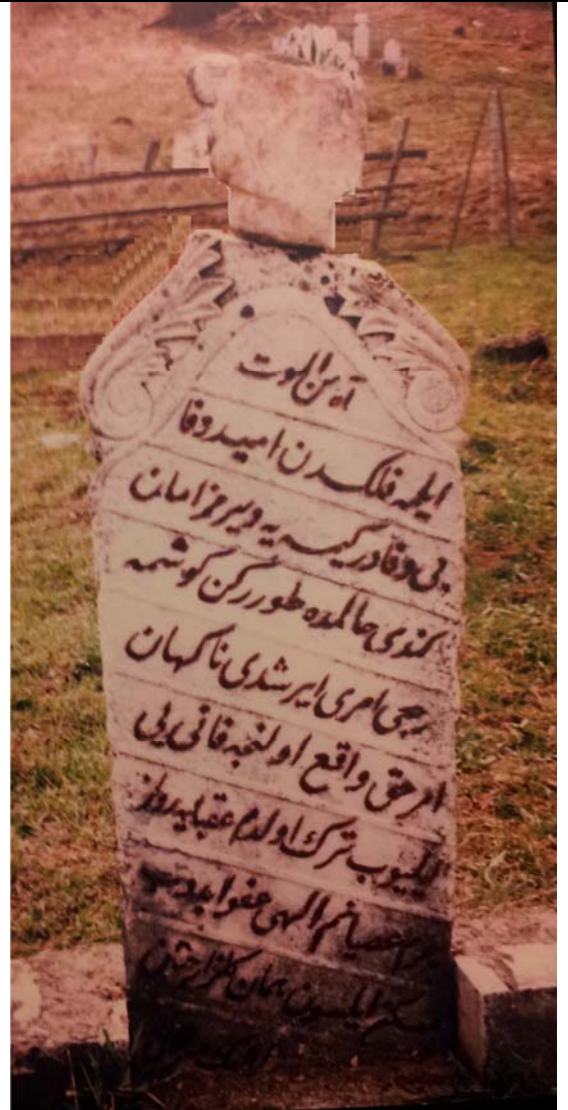 آه من الموت
ایلمه فلکدن امید وفا
بی وفادر کیمسه یه ویرمز امان
کندی حالمده طوررکن کوشمه
رجعی امری ایرشدی ناکهان
امر حق واقع اولنجه فانی یی
ترك اولدم عقبایه روان
عصیانم الهی عفو ایدوب
ایلسون همان کلزار جنان